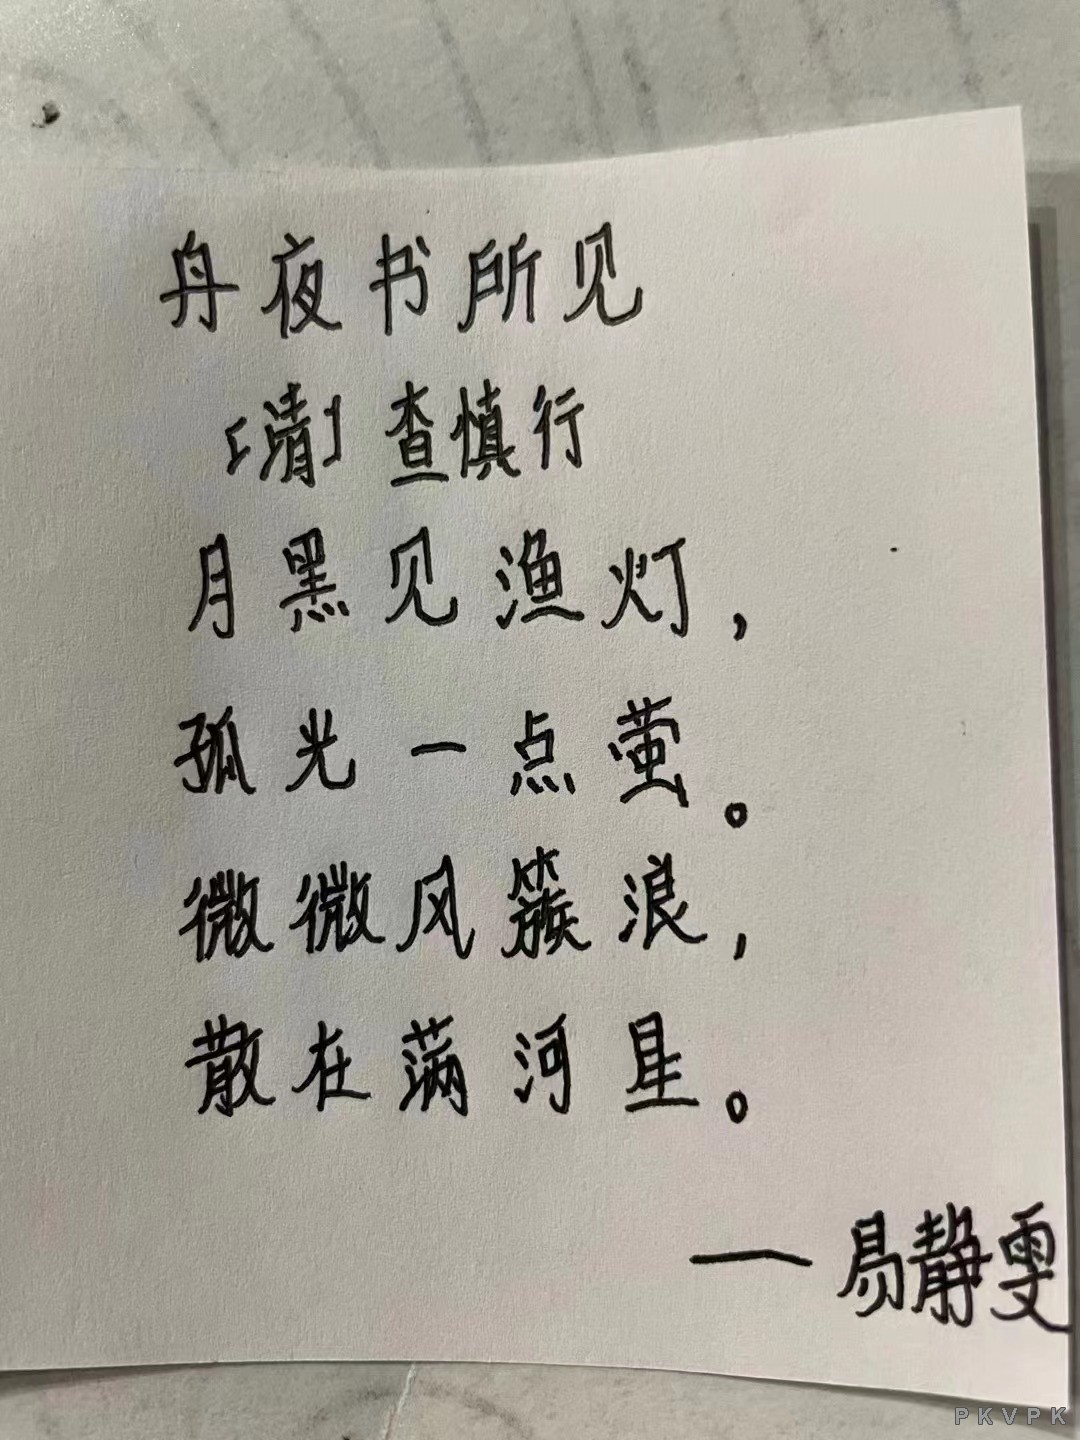 舟夜书所见
[清] 查慎行
月黑见渔灯，
孤光一点萤。
微微风簇浪，
散在满河星。
——易静雯
PKVPK